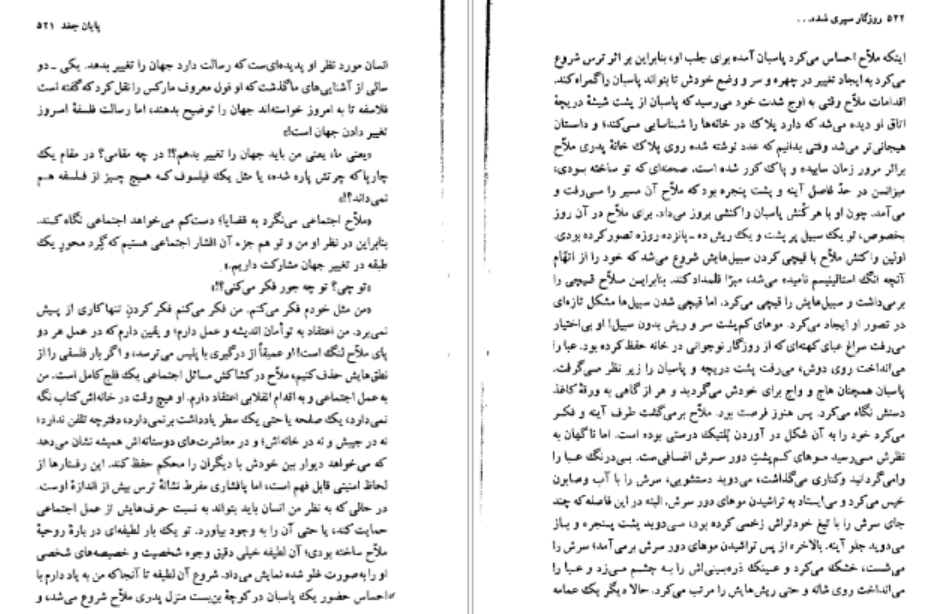 پایان جغد ۵۲۱
انسان مورد نظر او پدیده‌ای‌ست که رسالت دارد جهان را تغییر بدهد. یکی ـ دو
سالی از آشنایی‌های ما گذشت که او قول معروف مارکس را نقل کرد که گفته است
فلاسفه تا به امروز خواسته‌اند جهان را توضیح بدهند، اما رسالت فلسفهٔ امروز
تغییر دادن جهان است!»
«یعنی ما، یعنی من باید جهان را تغییر بدهم؟! در چه مقامی؟ در مقام یک
چارپا که چرتش پاره شده، یا مثل یک فیلسوف که هیچ چیز از فلسفه هم
نمی‌داند؟!»
«ملاّح اجتماعی می‌نگرد به قضایا؛ دست‌کم می‌خواهد اجتماعی نگاه کند.
بنابراین در نظر او من و تو هم جزء آن اقشار اجتماعی هستیم که گِرد محورِ یک
طبقه در تغییر جهان مشارکت داریم.»
«تو چی؟ تو چه جور فکر می‌کنی؟!»
«من مثل خودم فکر می‌کنم. من فکر می‌کنم فکر کردنِ تنها کاری از پیش
نمی‌برد. من اعتقاد به توأمان اندیشه و عمل دارم؛ و یقین دارم که در عمل هر دو
پای ملاّح لنگ است! او عمیقاً از درگیری با پلیس می‌ترسد، و اگر بار فلسفی را از
نطق‌هایش حذف کنیم، ملاّح در کشاکش مسائل اجتماعی یک فلج کامل است. من
به عمل اجتماعی و به اقدام انقلابی اعتقاد دارم. او هیچ وقت در خانه‌اش کتاب نگه
نمی‌دارد، یک صفحه یا حتی یک سطر یادداشت برنمی‌دارد، دفترچه تلفن ندارد؛
نه در جیبش و نه در خانه‌اش؛ و در معاشرت‌های دوستانه‌اش همیشه نشان می‌دهد
که می‌خواهد دیوار بین خودش با دیگران را محکم حفظ کند. این رفتارها از
لحاظ امنیتی قابل فهم است، اما پافشاری مفرط نشانهٔ ترس بیش از اندازهٔ اوست.
در حالی که به نظر من انسان باید بتواند به نسبت حرف‌هایش از عمل اجتماعی
حمایت کند، یا حتی آن را به وجود بیاورد. تو یک بار لطیفه‌ای در بارهٔ روحیهٔ
ملاّح ساخته بودی؛ آن لطیفه خیلی دقیق وجوه شخصیت و خصیصه‌های شخصی
او را به‌صورت غلو شده نمایش می‌داد. شروع آن لطیفه تا آنجا که من به یاد دارم با
احساس حضور یک پاسبان در کوچهٔ بن‌بست منزل پدری ملاّح شروع می‌شد، و
۵۲۲ روزگار سپری شده...
اینکه ملاّح احساس می‌کرد پاسبان آمده برای جلب او، بنابراین بر اثر ترس شروع
می‌کرد به ایجاد تغییر در چهره و سر و وضع خودش تا بتواند پاسبان را گمراه کند.
اقدامات ملاّح وقتی به اوج شدت خود می‌رسید که پاسبان از پشت شیشهٔ دریچهٔ
اتاق او دیده می‌شد که دارد پلاک در خانه‌ها را شناسایی می‌کند؛ و داستان
هیجانی‌تر می‌شد وقتی بدانیم که عدد نوشته شده روی پلاک خانهٔ پدری ملاّح
براثر مرور زمان ساییده و پاک کور شده است. صحنه‌ای که تو ساخته بودی،
میزانسن در حدّ فاصل آینه و پشت پنجره بود که ملاّح آن مسیر را می‌رفت و
می‌آمد. چون او با هر کُنش پاسبان واکنشی بروز می‌داد. برای ملاّح در آن روز
بخصوص، تو یک سبیل پر پشت و یک ریش ده ـ پانزده روزه تصور کرده بودی.
اولین واکنش ملاّح با قیچی کردن سبیل‌هایش شروع می‌شد که خود را از اتهّام
آنچه انگ استالینیسم نامیده می‌شد، مبرّا قلمداد کند. بنابراین ملاّح قیچی را
برمی‌داشت و سبیل‌هایش را قیچی می‌کرد. اما قیچی شدن سبیل‌ها مشکل تازه‌ای
در تصور او ایجاد می‌کرد. موهای کم‌پشت سر و ریش بدون سبیل! او بی‌اختیار
می‌رفت سراغ عبای کهنه‌ای که از روزگار نوجوانی در خانه حفظ کرده بود. عبا را
می‌انداخت روی دوش، می‌رفت پشت دریچه و پاسبان را زیر نظر می‌گرفت.
پاسبان همچنان هاج و واج برای خودش می‌گردید و هر از گاهی به ورقهٔ کاغذ
دستش نگاه می‌کرد. پس هنوز فرصت بود. ملاّح برمی‌گشت طرف آینه و فکر
می‌کرد خود را به آن شکل در آوردن پُلتیک درستی بوده است. اما ناگهان به
نظرش می‌رسید موهای کم‌پشتِ دور سرش اضافی‌ست. بی‌درنگ عبا را
وامی‌گردانید وکناری می‌گذاشت، می‌دوید دستشویی، سرش را با آب وصابون
خیس می‌کرد و می‌ایستاد به تراشیدن موهای دور سرش. البته در این فاصله که چند
جای سرش را با تیغ خودتراش زخمی کرده بود، می‌دوید پشت پنجره و باز
می‌دوید جلو آینه. بالاخره از پس تراشیدن موهای دور سرش برمی‌آمد؛ سرش را
می‌شست، خشک می‌کرد و عینک ذره‌بینی‌اش را به چشم می‌زد و عبا را
می‌انداخت روی شانه و حتی ریش‌هایش را مرتب می‌کرد. حالا دیگر یک عمامه